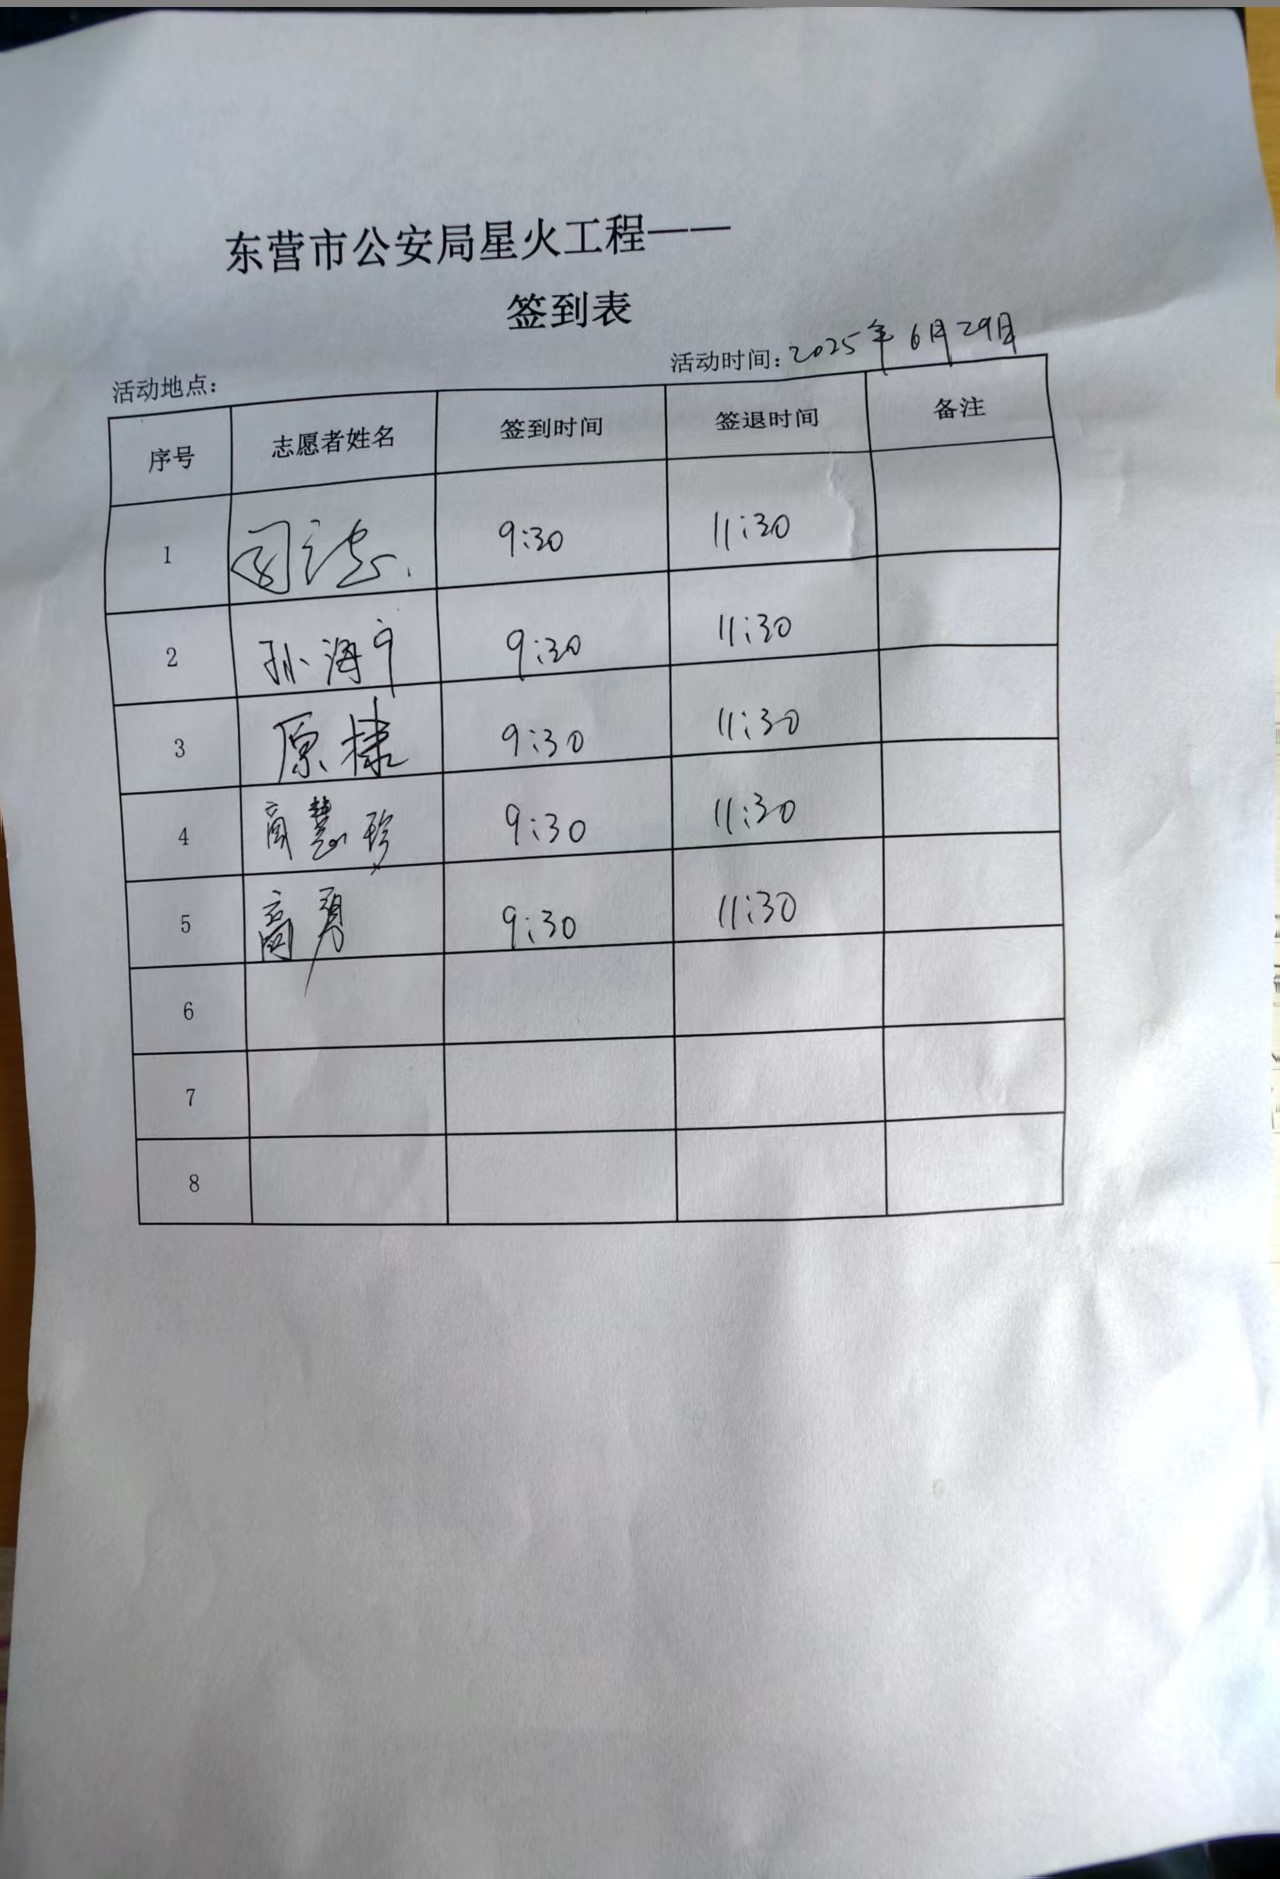 东营市公安局星火工程——
签到表
活动地点： 活动时间：2025年6月29日
序号 志愿者姓名 签到时间 签退时间 备注
1 9:30 11:30
2 孙海宁 9:30 11:30
3 原棣 9:30 11:30
4 慧珍 9:30 11:30
5 高勇 9:30 11:30
6
7
8